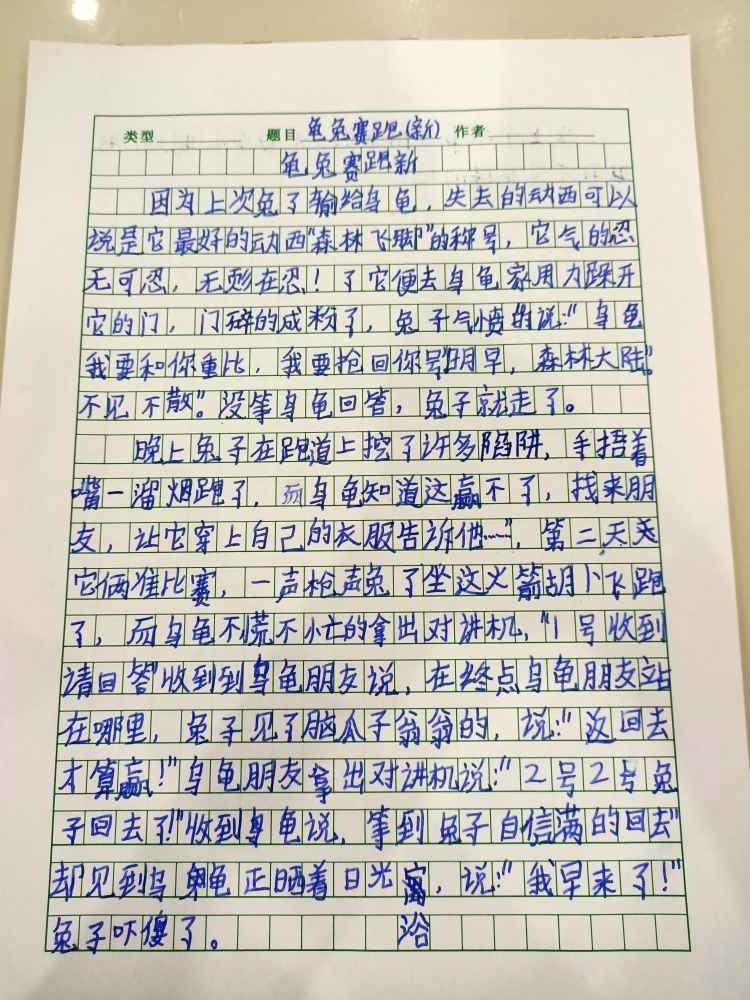 类型 题目 龟兔赛跑(新) 作者
龟兔赛跑新
因为上次兔了输给乌龟,失去的动西可以
说是它最好的动西“森林飞脚”的称号,它气的忍
无可忍,无彭在忍!了它便去乌龟家用力跺开
它的门,门碎的成粉了,兔子气愤的说:“乌龟
我要和你重比,我要抢回你号”明早,森林大陆”。
不见不散”。没等乌龟回答,兔子就走了。
晚上兔子在跑道上挖了许多陷阱,手捂着
嘴一溜烟跑了,而乌龟知道这赢不了,找来朋
友,让它穿上自己的衣服告诉他……”,第二天天
它俩准比赛,一声枪声兔了坐这火箭胡卜飞跑
了,而乌龟不慌不忙的拿出对讲机,“1号收到
请回答”收到到乌龟朋友说,在终点乌龟朋友站
在哪里,兔子见了脑瓜子翁翁的,说:“返回去
才算赢!”乌龟朋友拿出对讲机说:“2号2号兔
子回去了!”收到乌龟说,等到兔子自信满的回去”
却见到乌龟正晒着日光,说:“我早来了!”
兔子吓傻了。 浴